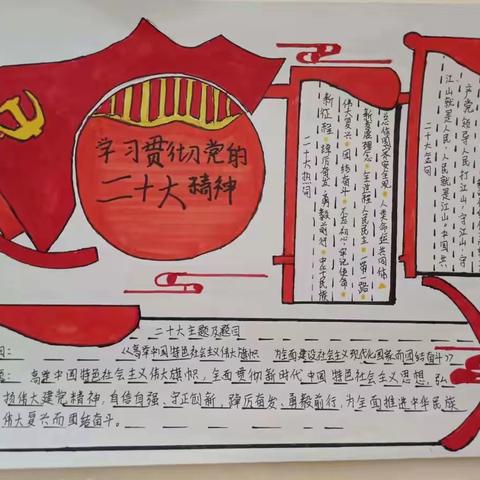 学习贯彻党的
二十大精神
二十大热词
新征程 踔厉奋发 勇毅前行 中华民族
伟大复兴 团结奋斗 不忘初心 牢记使命
新发展理念 全过程人民民主 一带一路
总体国家安全观 人类命运共同体
二十大金句
江山就是人民,人民就是江山。中国共
产党领导人民打江山,守江山,守
二十大主题及题目
《高举中国特色社会主义伟大旗帜 为全面建设社会主义现代化国家而团结奋斗》
高举中国特色社会主义伟大旗帜,全面贯彻新时代中国特色社会主义思想,弘
扬伟大建党精神,自信自强、守正创新,踔厉奋发、勇毅前行,为全面推进中华民族
伟大复兴而团结奋斗。